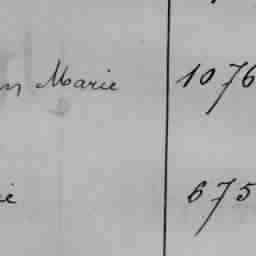 Marie 1076
675